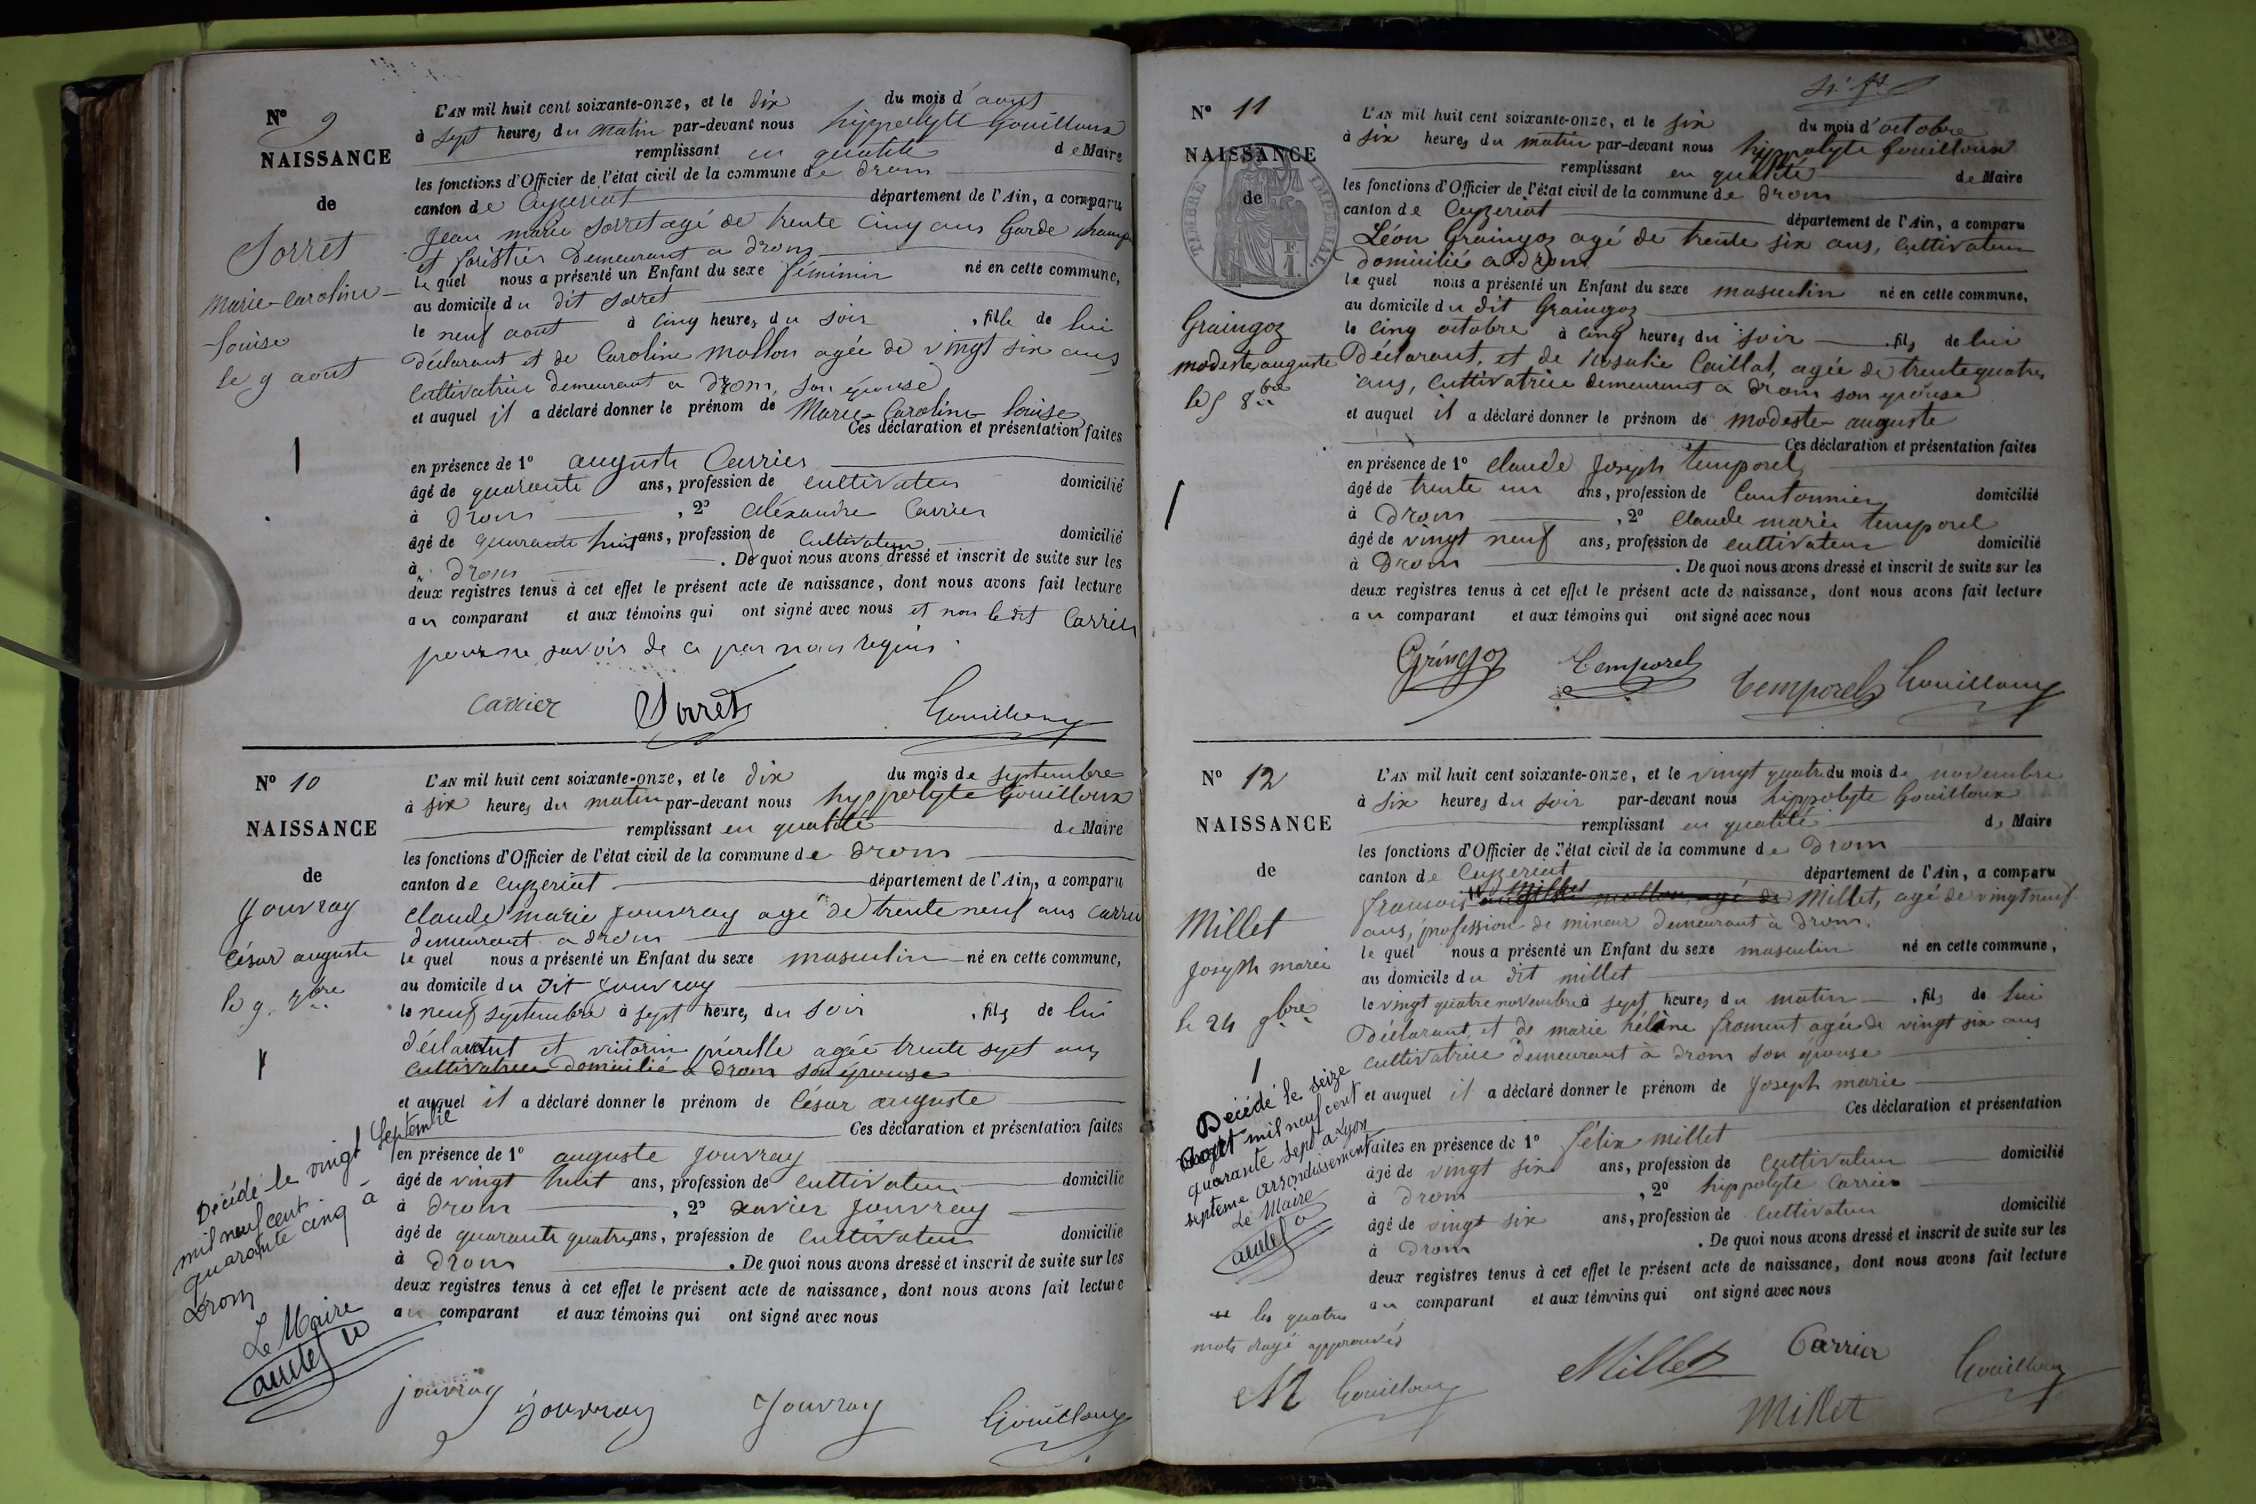 N° 9
NAISSANCE
de
Sorret
Marie-Caroline-
Louise
le 9 aout
L'AN mil huit cent soixante-onze, et le dix du mois d'aout
à sept heures du matin par-devant nous hyppolyte Gouilloux
remplissant en qualité de Maire
les fonctions d'Officier de l'état civil de la commune de Drom
canton de Ceyzeriat département de l'Ain, a comparu
Jean marie Sorret agé de trente cinq ans Garde champ
et foristier Demeurant a drom
le quel nous a présenté un Enfant du sexe féminin né en cette commune,
au domicile du dit Sorret
le neuf aout à cinq heures du soir , fille de lui
Déclarant et de Caroline Mollon agée de vingt six ans
Cultivatrice demeurant a Drom, son épouse
et auquel il a déclaré donner le prénom de Marie-Caroline Louise
Ces déclaration et présentation faites
en présence de 1° auguste Carrier
âgé de quarante ans, profession de cultivateur domicilié
à Drom , 2° alexandre Carrier
âgé de quarante huit ans, profession de Cultivateur domicilié
à Drom . De quoi nous avons dressé et inscrit de suite sur les
deux registres tenus à cet effet le présent acte de naissance, dont nous avons fait lecture
au comparant et aux témoins qui ont signé avec nous et non le dit Carrier
pour ne savoir de ce par nous requis.
Carrier Sorret Gouilloux
N° 10
NAISSANCE
de
Jouvray
César auguste
le 9 7bre
L'AN mil huit cent soixante-onze, et le dix du mois de septembre
à six heures du matin par-devant nous hyppolyte Gouilloux
remplissant en qualité de Maire
les fonctions d'Officier de l'état civil de la commune de Drom
canton de Ceyzeriat département de l'Ain, a comparu
Claude marie Jouvray agé de trente neuf ans Carrier
demeurant a drom
le quel nous a présenté un Enfant du sexe masculin né en cette commune,
au domicile du dit Jouvray
le neuf septembre à sept heures du soir , fils de lui
déclarant et victorin agée trente sept ans
cultivatrice domicilié a Drom son épouse
et auquel il a déclaré donner le prénom de César auguste
Ces déclaration et présentation faites
en présence de 1° auguste Jouvray
âgé de vingt huit ans, profession de cultivateur domicilié
à Drom , 2° xavier Jouvray
âgé de quarante quatre ans, profession de Cultivateur domicilié
à Drom . De quoi nous avons dressé et inscrit de suite sur les
deux registres tenus à cet effet le présent acte de naissance, dont nous avons fait lecture
au comparant et aux témoins qui ont signé avec nous
Décédé le vingt Septembre
mil neuf cent
quarante cinq à
Drom
Le Maire
jouvray jouvray Jouvray Gouilloux
N° 11
NAISSANCE
de
TIMBRE IMPERIAL
F
1.
Graingoz
modeste auguste
le 5 8bre
L'AN mil huit cent soixante-onze, et le six du mois d'octobre
à six heures du matin par-devant nous hyppolyte Gouilloux
remplissant en qualité de Maire
les fonctions d'Officier de l'état civil de la commune de Drom
canton de Ceyzeriat département de l'Ain, a comparu
Léon Graingoz agé de trente six ans, cultivateur
domicilié a Drom
le quel nous a présenté un Enfant du sexe masculin né en cette commune,
au domicile du dit Graingoz
le cinq octobre à cinq heures du soir , fils de lui
Déclarant, et de Rosalie Caillat, agée de trente quatre
ans, cultivatrice demeurant a Drom son épouse
et auquel il a déclaré donner le prénom de modeste-auguste
Ces déclaration et présentation faites
en présence de 1° Claude Joseph temporel
âgé de trente un ans, profession de Cantonnier domicilié
à Drom , 2° Claude marie temporel
âgé de vingt neuf ans, profession de cultivateur domicilié
à Drom . De quoi nous avons dressé et inscrit de suite sur les
deux registres tenus à cet effet le présent acte de naissance, dont nous avons fait lecture
au comparant et aux témoins qui ont signé avec nous
Gringoz Temporel temporel Gouilloux
N° 12
NAISSANCE
de
Millet
Joseph marie
le 24 9bre
L'AN mil huit cent soixante-onze, et le vingt quatre du mois de novembre
à six heures du soir par-devant nous hippolyte Gouilloux
remplissant en qualité de Maire
les fonctions d'Officier de l'état civil de la commune de Drom
canton de Ceyzeriat département de l'Ain, a comparu
françois Millet, agé de vingt neuf
ans, profession de mineur demeurant à Drom.
le quel nous a présenté un Enfant du sexe masculin né en cette commune,
au domicile du dit millet
le vingt quatre novembre à sept heures du matin , fils de lui
Déclarant, et de marie hélène froment agée de vingt six ans
cultivatrice demeurant à Drom son épouse
et auquel il a déclaré donner le prénom de Joseph marie
Ces déclaration et présentation
faites en présence de 1° félix millet
âgé de vingt six ans, profession de cultivateur domicilié
à Drom , 2° hippolyte Carrier
âgé de vingt six ans, profession de cultivateur domicilié
à Drom . De quoi nous avons dressé et inscrit de suite sur les
deux registres tenus à cet effet le présent acte de naissance, dont nous avons fait lecture
au comparant et aux témoins qui ont signé avec nous
Décédé le seize
Août mil neuf cent
quarante sept à Lyon
septième arrondissement
Le Maire
les quatre
mots rayé approuvés
M Gouilloux Millet Carrier Gouilloux
Millet